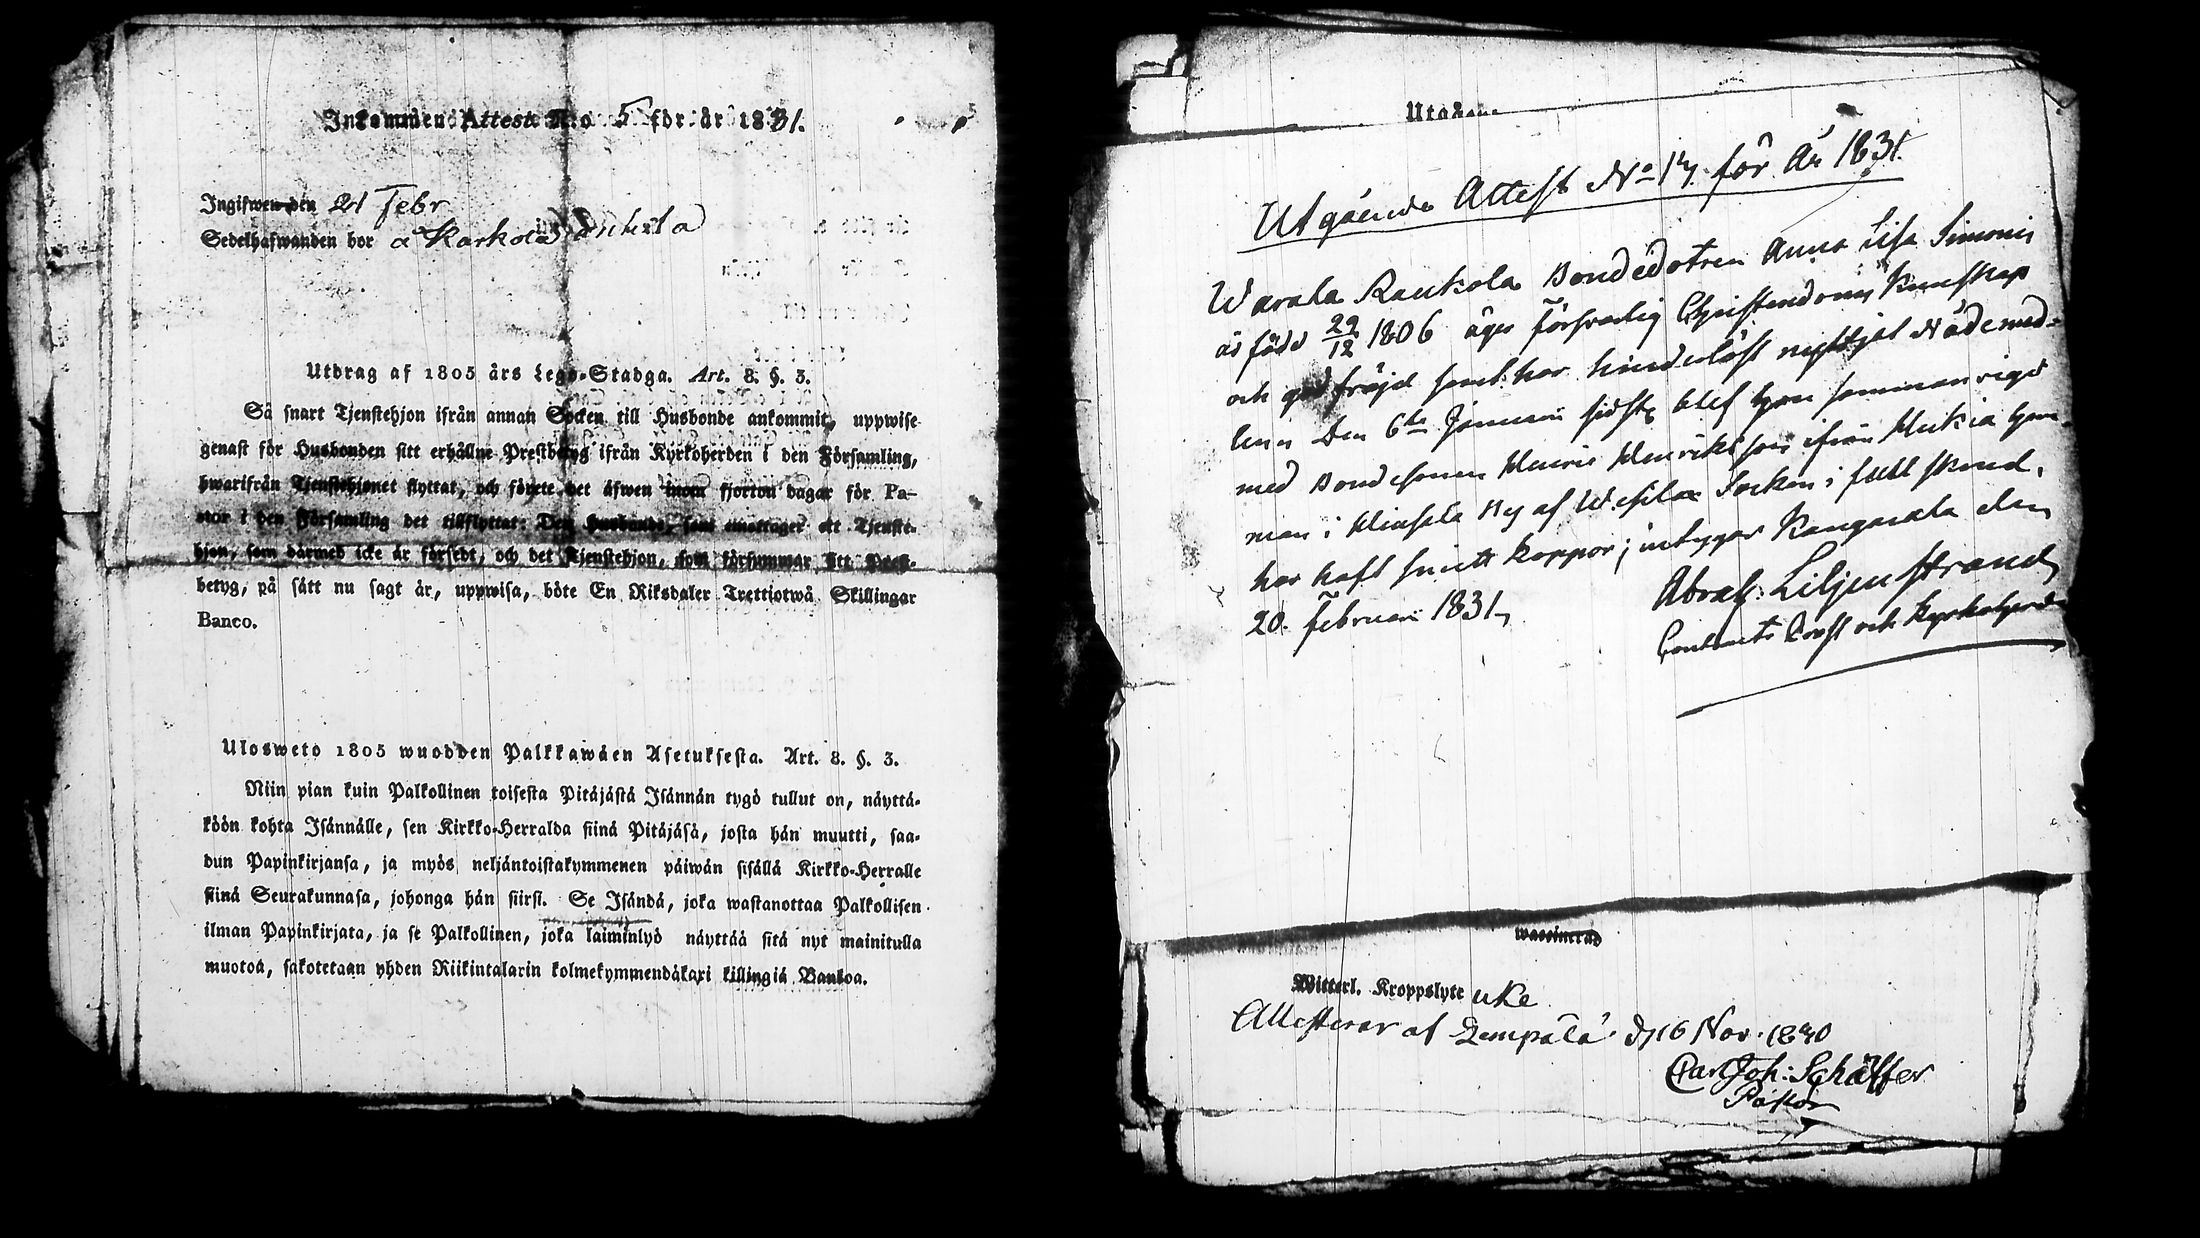 Inkommen Attest N:o 5 för år 1831.
Ingifwen den 21 Febr
Sedelhafwanden bor å Karkola
Utdrag af 1805 års Lego-Stadga. Art. 8. §. 3.
Så snart Tjenstehjon ifrån annan Socken till Husbonde ankommit, uppwise
genast för Husbonden sitt erhållne Prestbetyg ifrån Kyrkoherden i den Församling,
hwarifrån Tjenstehjonet flyttat, och förete det äfwen inom fjorton dagar för Pa-
stor i den Församling det tillflyttat: Den Husbonde, som emottager ett Tjenste-
hjon, som därmed icke är försedt, och det Tjenstehjon, som försummar sitt Prest-
betyg, på sätt nu sagt är, uppwisa, böte En Riksdaler Trettiotwå Skillingar
Banco.
Ulosweto 1805 wuodden Palkkawäen Asetuksesta. Art. 8. §. 3.
Niin pian kuin Palkollinen toisesta Pitäjästä Isännän tygö tullut on, näyttä-
köön kohta Isännälle, sen Kirkko-Herralda siinä Pitäjäsä, josta hän muutti, saa-
dun Papinkirjansa, ja myös neljäntoistakymmenen päiwän sisällä Kirkko-Herralle
siinä Seurakunnasa, johonga hän siirsi. Se Isändä, joka wastanottaa Palkollisen
ilman Papinkirjata, ja se Palkollinen, joka laiminlyö näyttää sitä nyt mainitulla
muotoa, sakotetaan yhden Riikintalarin kolmekymmendäkaxi killingiä Bankoa.
Utgåen
Utgående Attest No 17 för År 1831.
Warala Raukola Bondedotren Anna Lisa Simonis
är född 29/12 1806 äger försvarlig Christendoms kunskap
och god fräjd samt har hinderlöst nyttjat Nådemed-
len; Den 6te Januari sidstl blef hon sammanvigd
med Bondesonen Henric Henriksson ifrån Mukia hem
man i Hinsala By af Wesilax Socken i full skrud,
har haft smitt koppor; intygar Kangasala den
20. Februari 1831,
Abrah: Liljenstrand
Contracts Prost och Kyrkoherde
waccinerad
Widtterl. Kroppslyte icke
Attesterar af Lempälä d 16 Nov. 1830
Carl Joh: Schäffer
Pastor